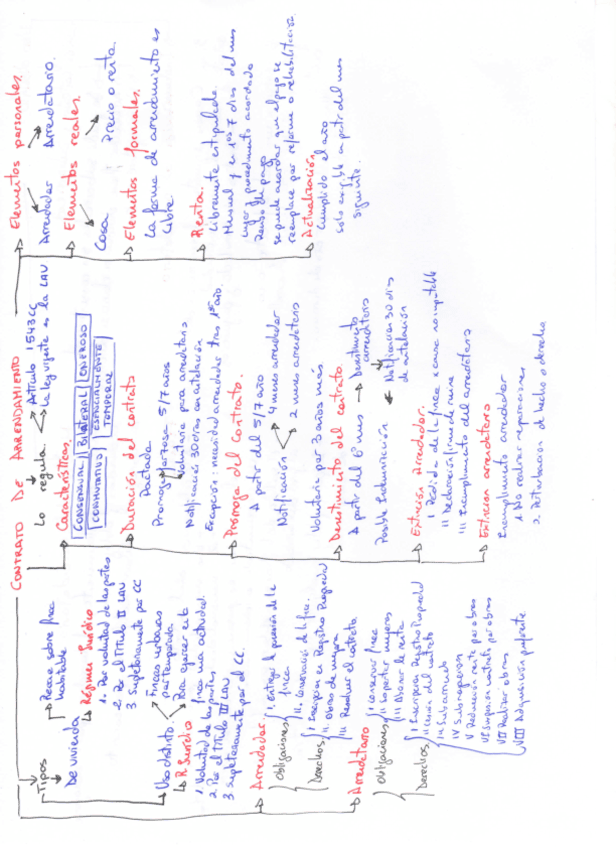 CONTRATO DE ARRENDAMIENTO
Lo regula
Artículo 1543 CC
la ley vigente es la LAU
Tipos
De vivienda
Recae sobre finca
habitable
Régimen Jurídico
1. Por voluntad de las partes
2. Por el Título II LAU
3. Supletoriamente por CC
Uso distinto
Fincas urbanas
por temporada
Para ejercer en la
finca una actividad.
R. Jurídico
1. Voluntad de las partes
2. Por el Título III LAU
3. Supletoriamente por el CC.
Arrendador
Obligaciones
I. entregar la posesión de la
finca
II. Conservación de la finca.
Derechos
I Inscripción en Registro Propiedad
II. Obras de mejora
III Resolver el contrato
Arrendatario
Obligaciones
I Conservar finca
II Soportar mejoras
III Abonar la renta
Derechos
I Inscripción Registro Propiedad
II Cesión del contrato
III Subarriendo
IV Subrogarse
V Reducción renta por obras
VI Suspensión contrato por obras
VII Realizar obras
VIII Adquisición preferente
Características
CONSENSUAL
BILATERAL
ONEROSO
CONMUTATIVO
ESENCIALMENTE
TEMPORAL
Duración del contrato
Pactada
Prórroga forzosa 5/7 años
Voluntaria para arrendatario
Notificación 30 días con antelación
Excepción: necesidad arrendador tras 1er año.
Prórroga del Contrato.
A partir del 5/7 año
Notificación
4 meses arrendador
2 meses arrendatario
Voluntaria por 3 años más
Desistimiento del contrato
A partir del 6º mes
Desistimiento
arrendatario
Notificación 30 días
de antelación
Posible Indemnización
Extinción Arrendador.
I Pérdida de la finca x causa no imputable
II Declaración firme de ruina
III Incumplimiento del arrendatario
Extinción arrendatario
Incumplimiento arrendador
1. No realizar reparaciones
2. Perturbación de hecho o derecho
Elementos personales.
Arrendador
Arrendatario.
Elementos reales.
Cosa
Precio o renta.
Elementos formales.
La forma de arrendamiento es
libre
Renta.
Libremente estipulada.
Mensual y en 1os 7 días del mes
lugar y procedimiento acordado
del pago
se puede acordar que el pago se
reemplace por reforma o rehabilitación
Actualización
Cumplido el año
solo exigible a partir del mes
siguiente.